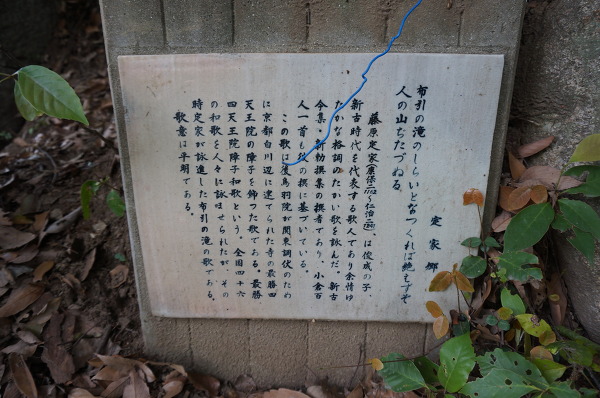 布引の滝のしらいとなつくれば絶えずぞ
人の山ぢたづぬる
定家卿
藤原定家は俊成の子、
新古時代を代表する歌人であり余情ゆ
たかな格調のたかい歌を詠んだ。新古
今集・新勅撰集の撰者であり、小倉百
人一首も彼の撰に基づいている。
この歌は後鳥羽院が関東調伏のため
に京都白川辺に建てられた寺の最勝四
天王院の障子を飾った歌である。最勝
四天王院障子和歌という。全国四十六
の和歌を人々に詠ませられたが、その
時定家が詠進した布引の滝の歌である。
歌意は平明である。